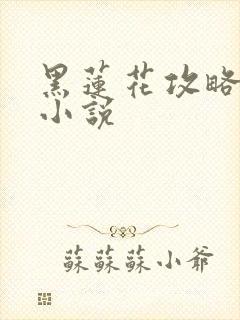 黑蓮花攻略
小說
蘇蘇蘇小爺